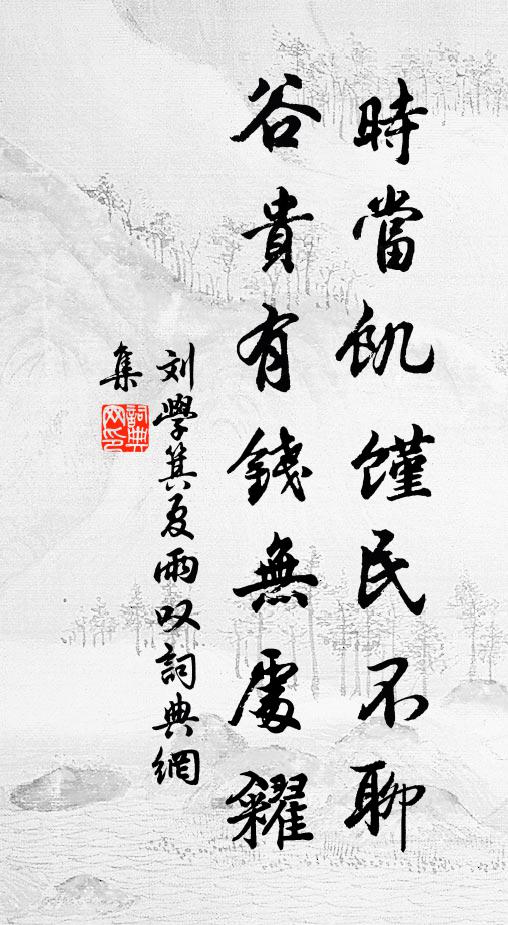 時當飢饉民不聊
谷貴有錢無處糴
刘學箕夏雨叹詞典網
集
詞典
网印